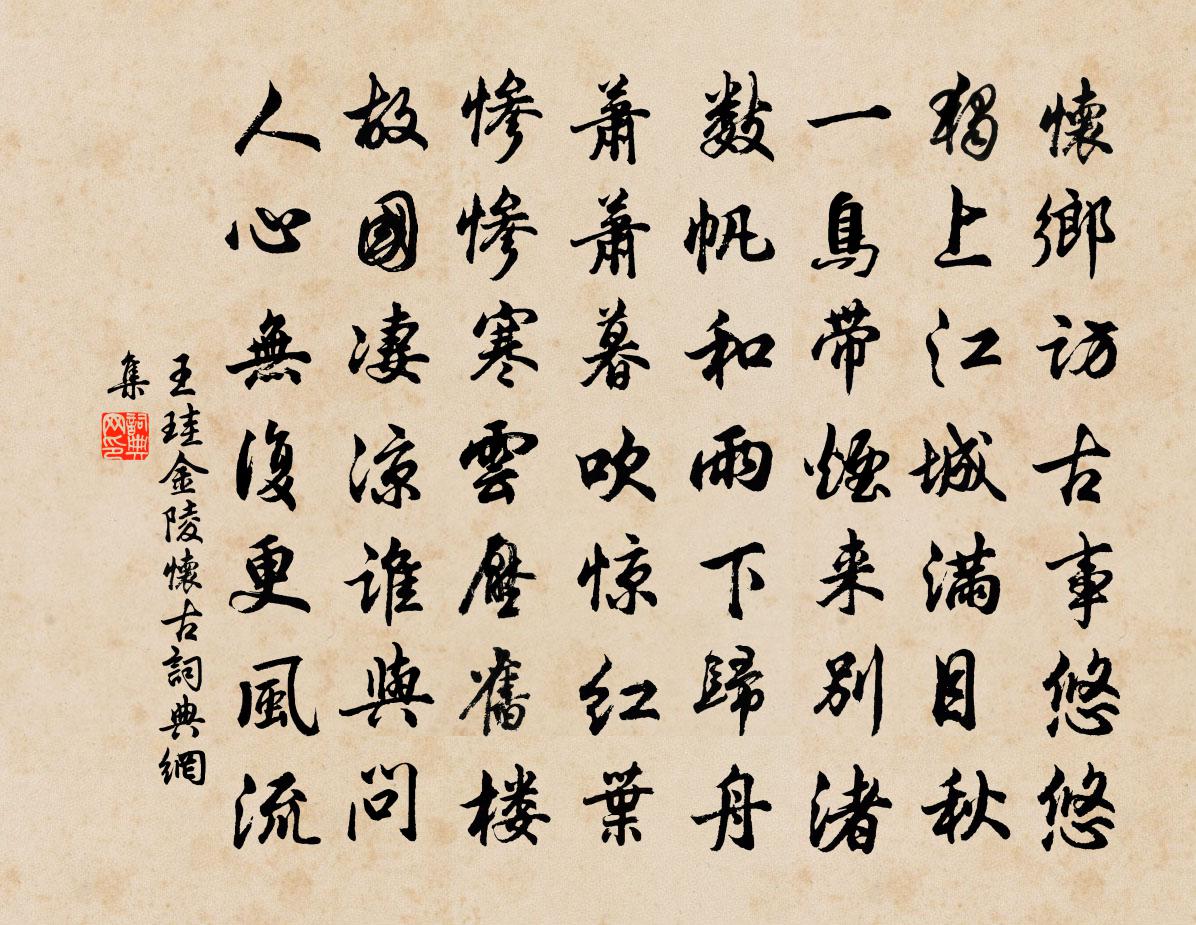 懷鄉訪古事悠悠
獨上江城滿目秋
一鳥帶煙来別渚
數帆和雨下歸舟
蕭蕭暮吹惊红葉
慘慘寒雲壓舊楼
故國凄涼誰與問
人心無復更風流
王珪金陵懷古詞典網
集
詞典
网印